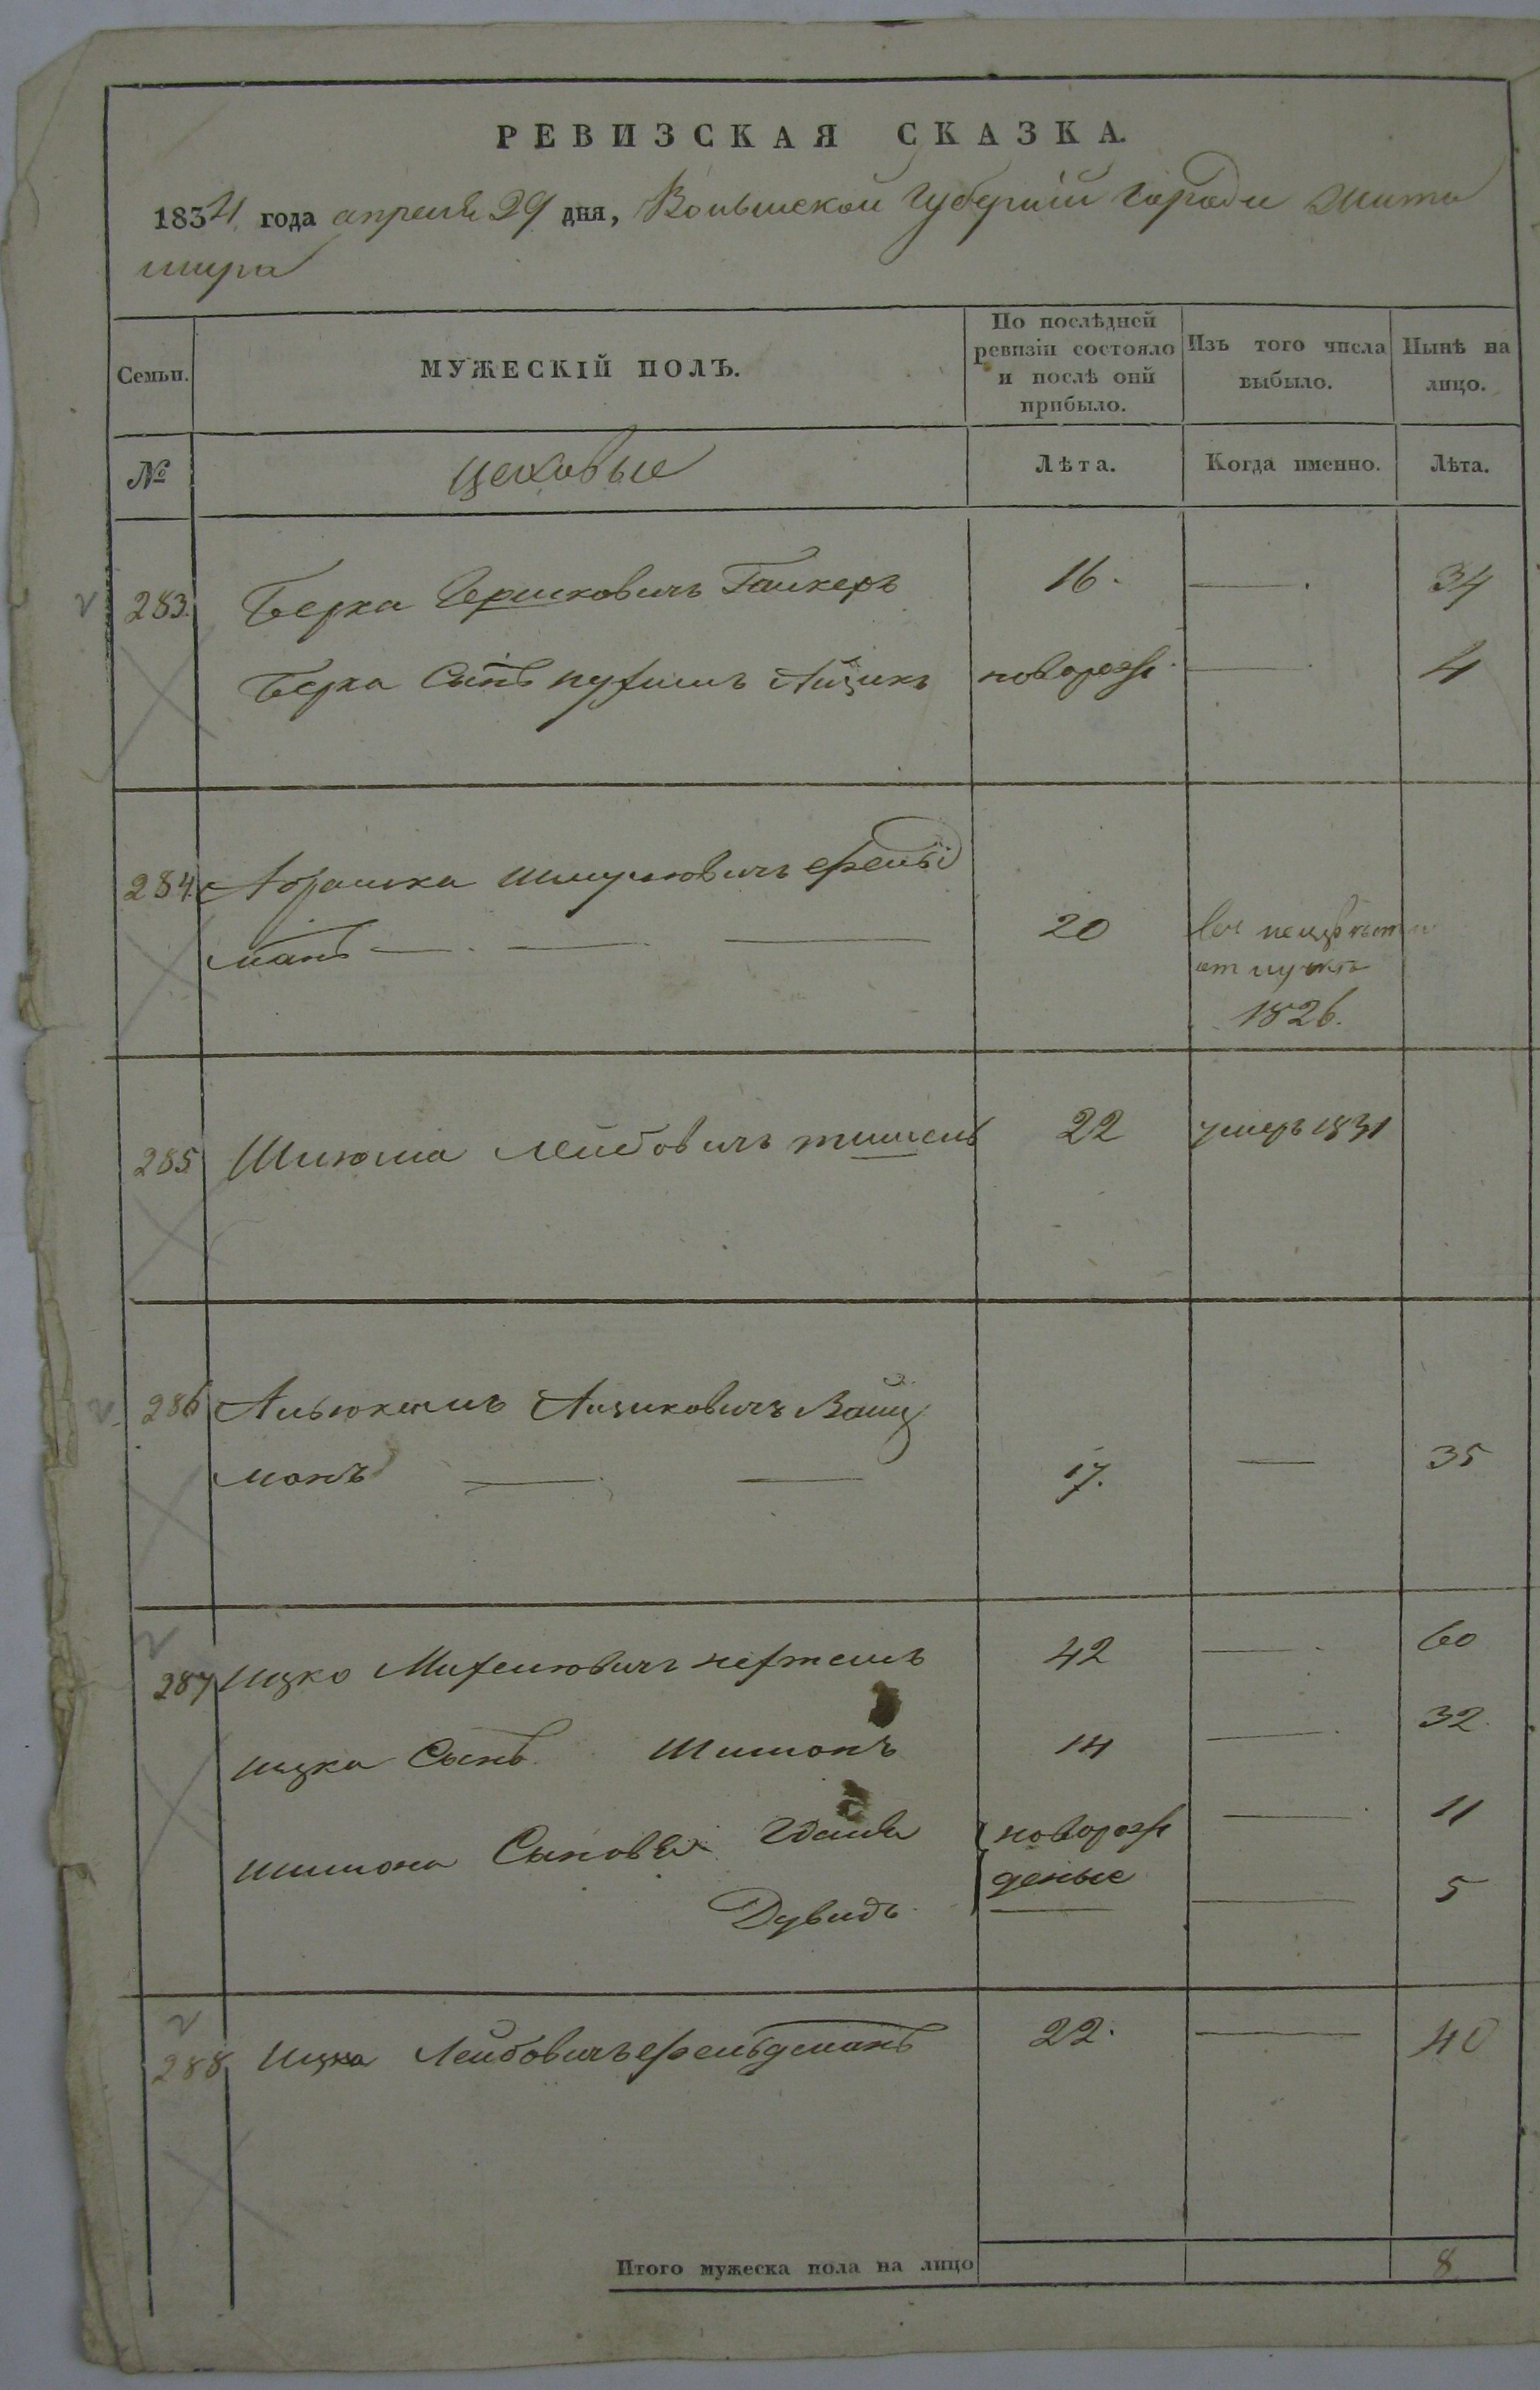 РЕВИЗСКАЯ СКАЗКА.
1834 года апреля 29 дня, Волынской Губернии города Жито
мира
Семьи. МУЖЕСКІЙ ПОЛЪ. По послѣдней ревизіи состояло и послѣ оній прибыло. Изъ того числа выбыло. Нынѣ на лицо.
№ цеховые Лѣта. Когда именно. Лѣта.
283. Берка Гершковичъ 16. — 34
Берка Сынъ Айзикъ новорож — 4
284. Абрашка Шмулювичъ фельд
манъ — — — 20
1826.
285 Шлюма Лейбовичъ 22 умеръ 1831
286 Айзиковичъ Вайц
манъ — — 17. — 35
287 Ицко Михелювичъ 42 — 60
ицка Сынъ Шимонъ 14 — 32
шимона Сыновья новорож — 11
Дувидъ деные — 5
288 Ицка Лейбовичъ фельдманъ 22. — 40
Итого мужеска пола на лицо 8